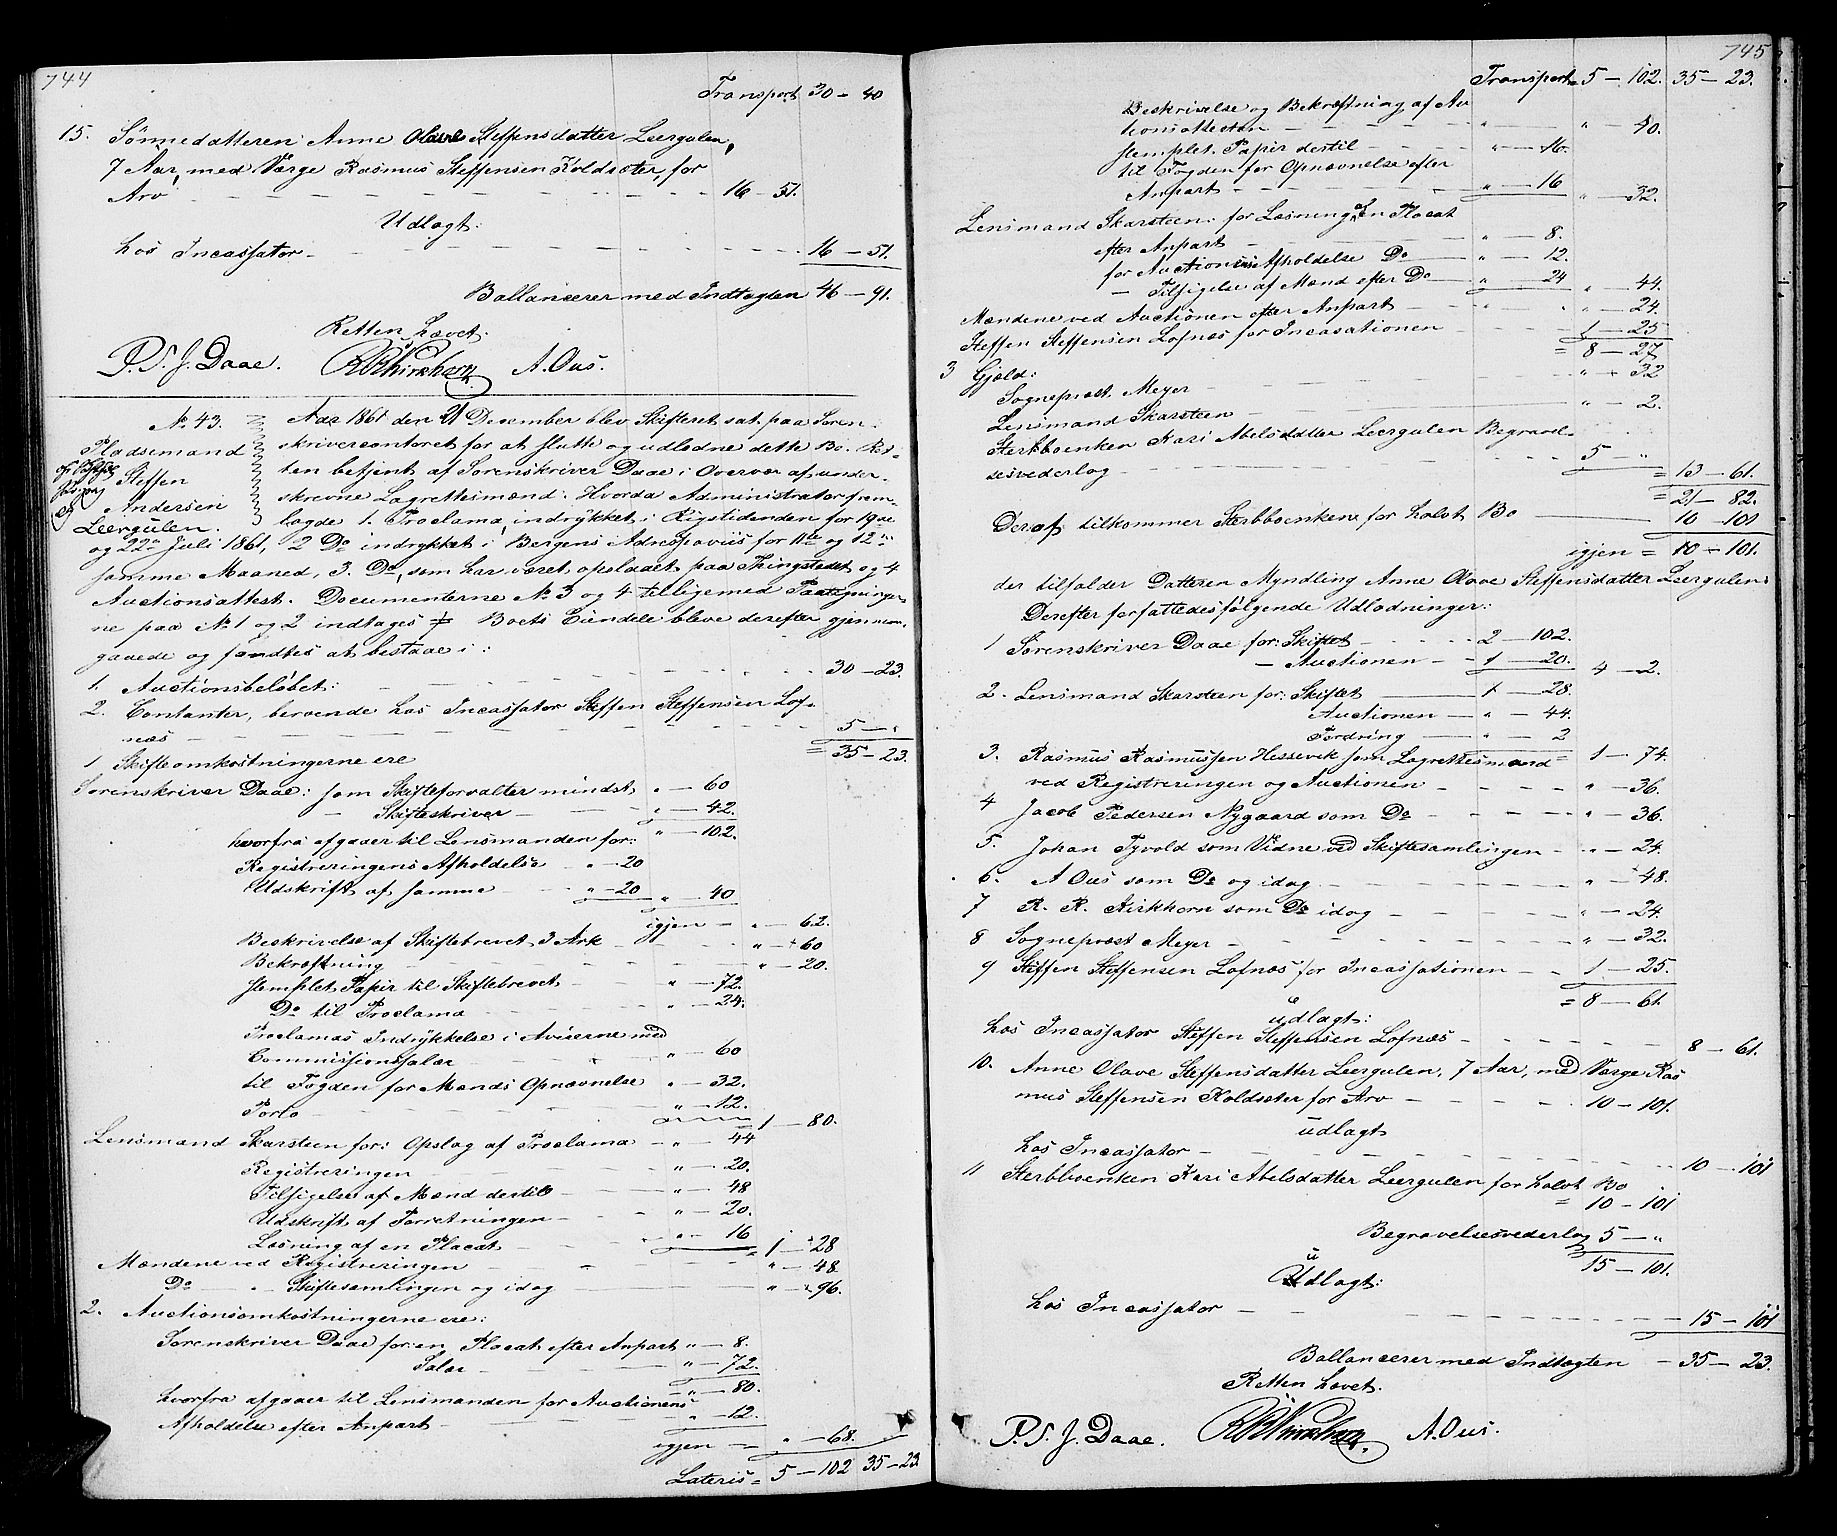 744
Transport 30 - 40
15. Sønnedatteren Anne Olave Steffensdatter Leergulen,
7 Aar, med Værge Rasmus Steffensen Koldsæter, for
Arv - 16 - 51.
Udlagt:
hos Incassator - 16 - 51.
Ballancerer med Indtægten 46 - 91.
Retten hævet.
P. S. J. Daae. R R Kirkhorn A. Ous.
No 43.
Pladsemand
Steffen
Andersen
Leergulen.
Aar 1861 den 21 December blev Skifteret sat paa Soren-
skrivercontoret for at slutte og udlodne dette Bo. Ret-
ten betjent af Sorenskriver Daae i Overvær af under-
skrevne Lagrettesmænd. Hvorda Administrator frem-
lagde 1. Proclama indrykket i Rigstidenden for 19de
og 22de Juli 1861, 2 Do indrykket i Bergens Adresseaviis for 11te og 12te
samme Maaned, 3. Do, som har været opslaaet paa Thingstedet og 4
Auctionsattest. Documenterne No 3 og 4 tilligemed Paategninger-
ne paa No 1 og 2 indtages Boets Eiendele bleve derefter gjennem-
gaaede og fandtes at bestaae i:
1. Auctionsbeløbet: - 30 - 23.
2. Contanter, beroende hos Incassator Steffen Steffensen Lof-
næs - 5 - "
= 35 - 23.
1 Skifteomkostningerne ere
Sorenskriver Daae: som Skifteforvalter mindst " - 60
- Skifteskriver - " - 42.
" - 102.
hvorfra afgaaer til Lensmanden for:
Registreringens Afholdelse " - 20
Udskrift af samme " - 20 " - 40
igjen - " - 62.
Beskrivelse af Skiftebrevet 3 Ark - " - 60
Bekræftning - " - 20.
stemplet Papir til Skiftebrevet - " - 72.
Do til Proclama - " - 24.
Proclamas Indrykkelse i Aviserne med
Commissionssalær - " - 60
til Fogden for Mænds Opnævnelse " - 32.
Porto - " - 12.
1 - 80.
Lensmand Skarsteen for: Opslag af Proclama - " - 44
Registreringen - " - 20.
Tilsigelse af Mænd dertil - " - 48
Udskrift af Forretningen - " - 20.
Læsning af en Placat - " - 16
1 - 28
Mændene ved Registreringen - " - 48
Do " Skiftesamlingen og idag - " - 96.
2. Auctionsomkostningerne ere:
Sorenskriver Daae for: en Placat efter Anpart " - 8.
Salær - " - 72.
" - 80.
hvorfra afgaaer til Lensmanden for Auctionens
Afholdelse efter Anpart - " - 12.
igjen - " - 68.
Lateris = 5 - 102 35 - 23
745
Transport = 5 - 102. 35 - 23.
Beskrivelse og Bekræftning af Au
tionsattesten - " - 40.
stemplet Papir dertil - " - 16.
til Fogden for Opnævnelse efter
Anpart - " - 16
" - 32.
Lensmand Skarsteen: for Læsning af en Placat
efter Anpart - " - 8.
for Auctionens Afholdelse Do - " - 12.
- Tilsigelse af Mænd efter Do - " - 24
" - 44.
Mændene ved Auctionen efter Anpart - " - 24.
Steffen Steffensen Lofnæs for Incasationen - 1 - 25
= 8 - 27
3 Gjæld:
Sognepræst Meyer - " - 32
Lensmand Skarsteen - " - 2.
Sterbboenken Kari Abelsdatter Leergulen Begravel-
sesvederlag - 5 - "
= 13 - 61.
= 21 - 82.
Deraf tilkommer Sterbboenken for halvt Bo - 10 - 101
igjen = 10 - 101.
der tilfalder Datteren Myndling Anne Olave Steffensdatter Leergulen.
Derefter forfattedes følgende Udlodninger:
1 Sorenskriver Daae for: Skiftet - 2 - 102.
- Auctionen - 1 - 20.
4 - 2.
2. Lensmand Skarsteen for: Skiftet - 1 - 28.
Auctionen - " - 44.
Fordring - " - 2
1 - 74.
3. Rasmus Rasmussen Hessevik som Lagrettesmand
ved Registreringen og Auctionen - " - 36.
4 Jacob Pedersen Nygaard som Do - " - 36.
5. Johan Tyvold som Vidne ved Skiftesamlingen - " - 24.
6. A Ous som Do og idag - " - 48.
7 R. R. Kirkhorn som Do idag - " - 24.
8 Sognepræst Meyer - " - 32.
9 Steffen Steffensen Lofnæs for Incassationen - 1 - 25.
= 8 - 61.
udlagt:
hos Incassator Steffen Steffensen Lofnæs - 8 - 61.
10. Anne Olave Steffensdatter Leergulen, 7 Aar, med Værge Ras
mus Steffensen Koldsæter for Arv - 10 - 101.
udlagt
hos Incassator - 10 - 101
11 Sterbboenken Kari Abelsdatter Leergulen for halvt Bo
= 10 - 101
Begravelsesvederlag 5 - "
15 - 101.
Udlagt:
hos Incassator - 15 - 101
Ballancerer med Indtægten - 35 - 23.
Retten hævet.
P. S. J. Daae. R R Kirkhorn A. Ous.